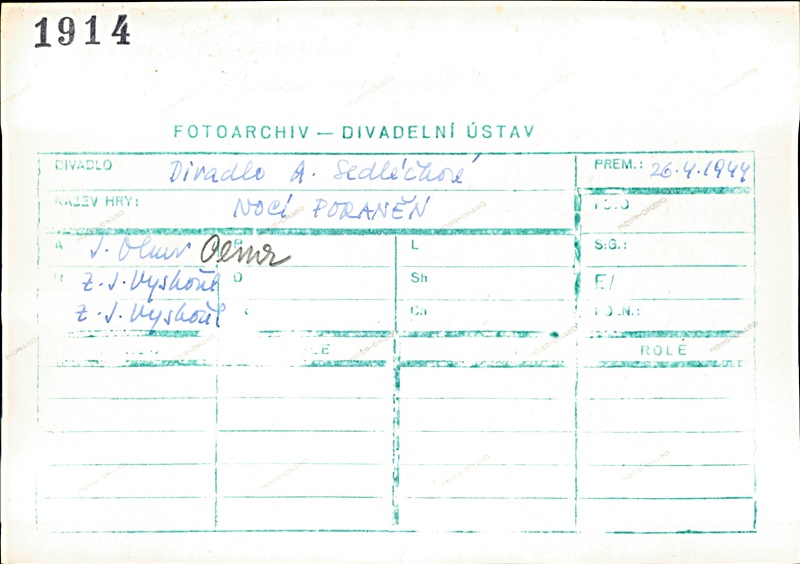 1914
FOTOARCHIV — DIVADELNÍ ÚSTAV
DIVADLO Divadlo A. Sedláčkové PREM.: 26.4.1944
NÁZEV HRY: NOCÍ PORANĚN
A J. Olmr Olmr L S:G.:
Z. J. Vyskočil O Sh E/
Z. J. Vyskočil Ch
ROLE